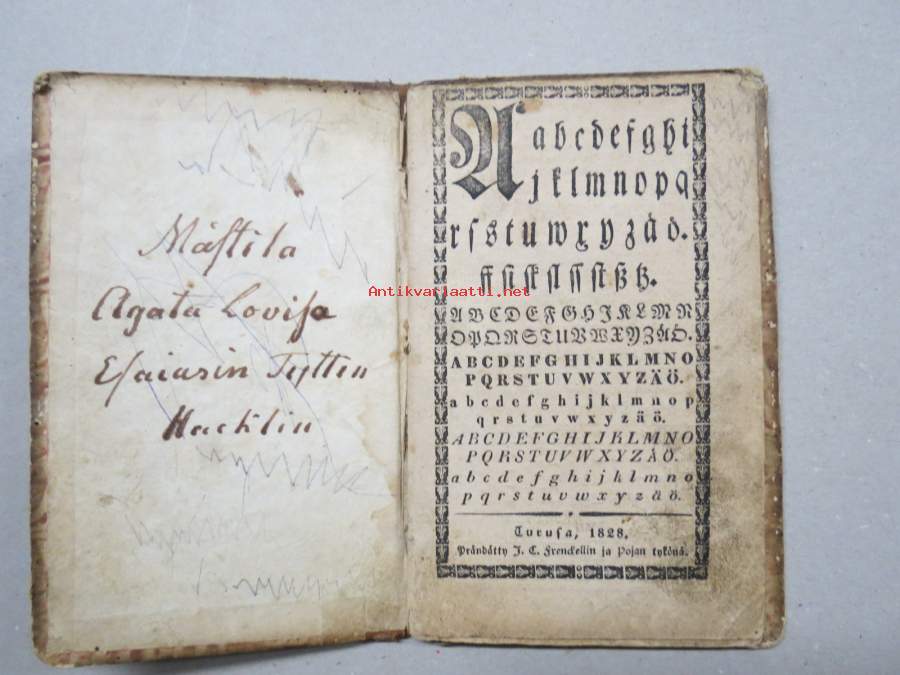 Mästila
Agata Lovisa
Esaiasin Tytten
Hacklin
A a b c d e f g h i
j k l m n o p q
r ſ s t u w x y z ä ö.
ff ſi ſk ſl ſſ ſt ß tz.
Antikvariaatti.net
A B C D E F G H J K L M N
O P Q R S T U V W X Y Z Ä Ö.
A B C D E F G H I J K L M N O
P Q R S T U V W X Y Z Ä Ö.
a b c d e f g h i j k l m n o p
q r s t u v w x y z ä ö.
A B C D E F G H I J K L M N O
P Q R S T U V W X Y Z Ä Ö.
a b c d e f g h i j k l m n o
p q r s t u v w x y z ä ö.
Turuſa, 1828,
Prändätty J. C. Frenckellin ja Pojan tykönä.